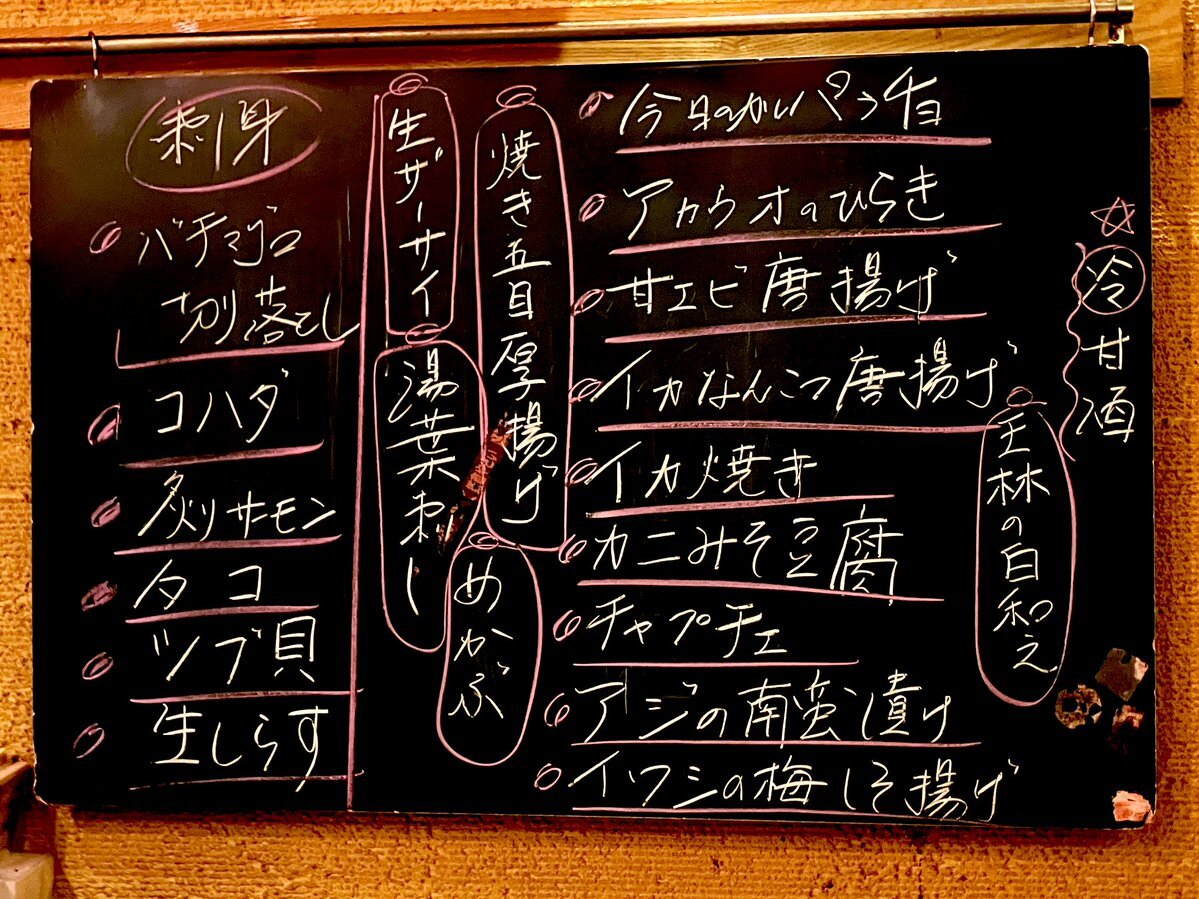 刺身
バチマグロ
切り落とし
コハダ
炙りサーモン
タコ
ツブ貝
生しらす
生ザーサイ
湯葉刺し
焼き五目厚揚げ
めかぶ
今日のかい
アカウオのひらき
甘エビ唐揚げ
イカなんこつ唐揚げ
イカ焼き
カニみそ豆腐
チャプチェ
アジの南蛮漬け
イワシの梅しそ揚げ
☆冷甘酒
王林の白和え